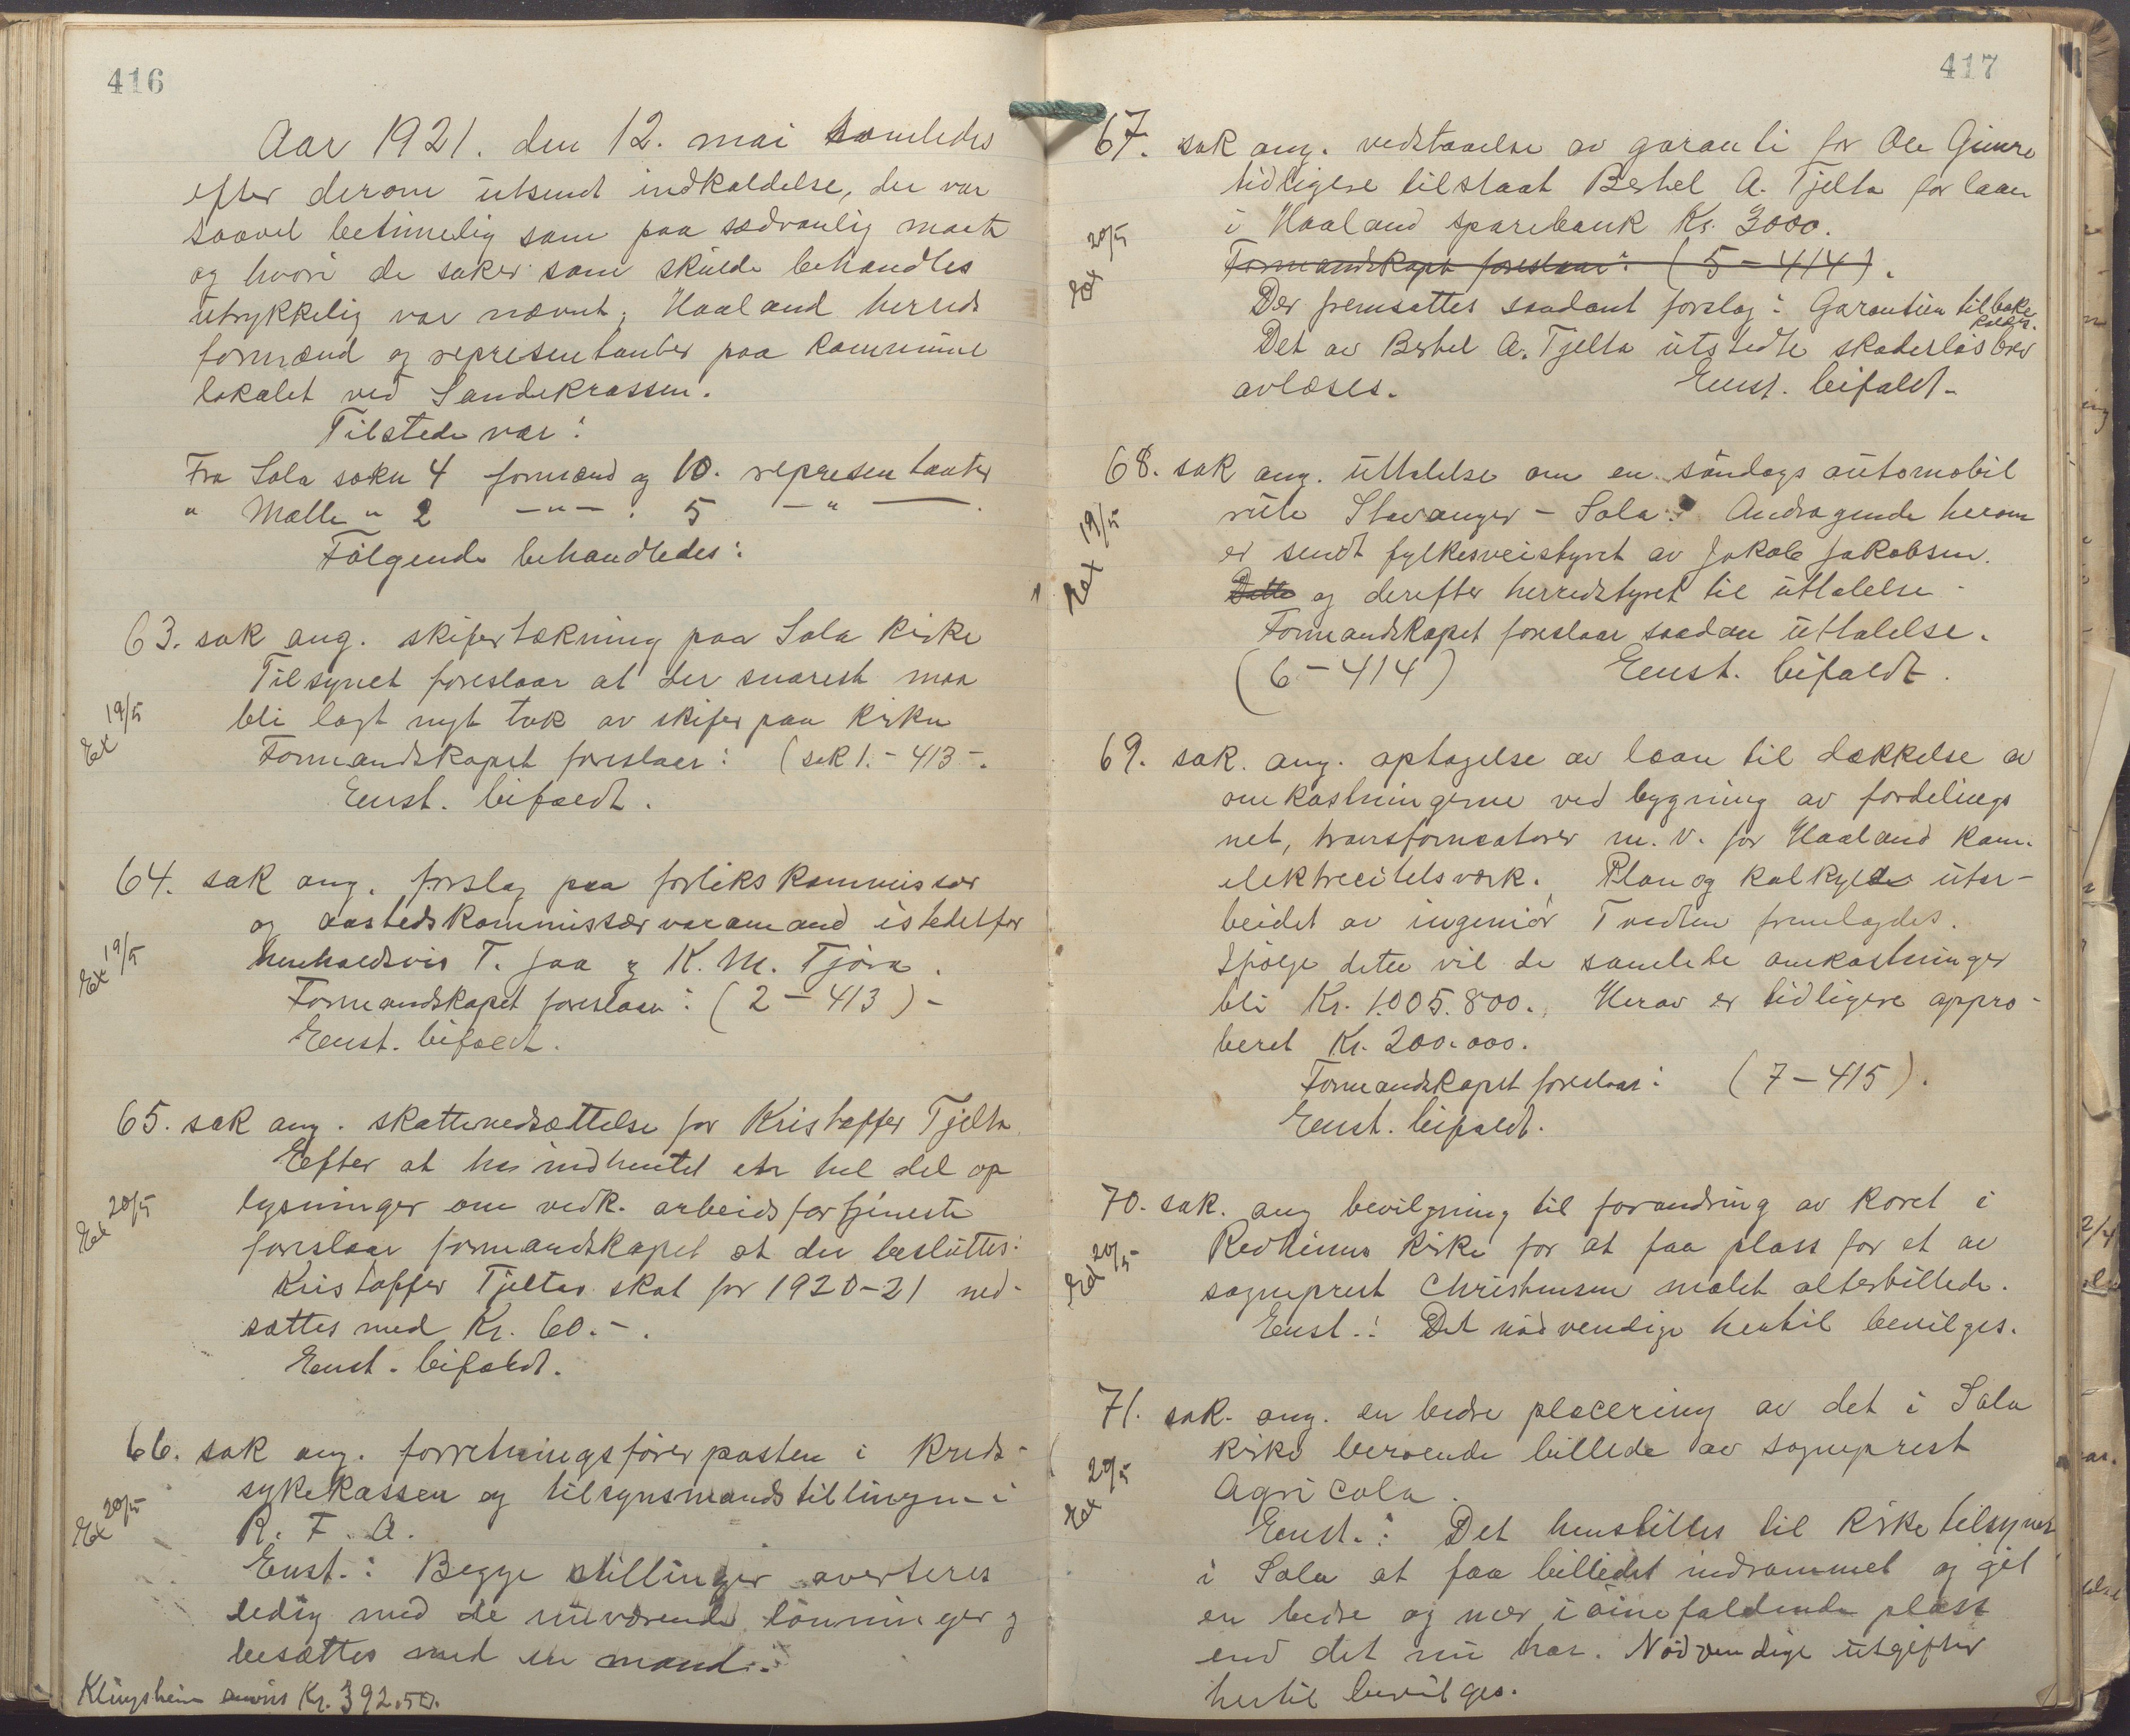 416
Aar 1921. den 12. mai samledes
efter derom utsendt indkaldelse, der var
saavel betimelig som paa sædvanlig maate
og hvori de saker som skulde behandles
utrykkelig var nævnt, Haaland herreds
formænd og representanter paa kommune
lokalet ved Sandekrossen.
Tilstede var:
Fra Sola sokn 4 formænd og 10. representanter
" Malle " 2 -"- . 5 -"-
Følgende behandledes:
63. sak ang. skifertækning paa Sola kirke
Tilsynet foreslaar at der snarest maa
bli lagt nyt tak av skifer paa kirken
Ex 19/5
Formandskapet foreslaar: (sak 1. - 413 -.
Enst. bifaldt.
64. sak ang. forslag paa forlikskommissær
og aastedskommissær varamand istedetfor
Ex 19/5
henholdsvis T. Joa og K. M. Tjora.
Formandskapet foreslaar: (2 - 413) -
Enst. bifaldt.
65. sak ang. skattenedsættelse for Kristoffer Tjelta.
Efter at ha indhentet en hel del op
Ex 20/5
lysninger om vedk. arbeidsfortjeneste
foreslaar formandskapet at der besluttes:
Kristoffer Tjeltas skat for 1920-21 ned-
sættes med Kr. 60.-.
Enst. bifaldt.
66. sak ang. forretningsførerposten i kreds-
sykekassen og tilsynsmandstillingen i
Ex 20/5
R. F. A.
Enst.: Begge stillinger averteres
ledig med de nuværende lønninger og
besættes med en mand.
Klingsheim anvis Kr. 392.50.
417
67. sak ang. vedstaaelse av garanti for Ole Gimre
tidligere tilstaat Bertel A. Tjelta for laan
Ex 20/5
i Haaland sparebank Kr. 3000.
Formandskapet foreslaar: (5 - 414).
Der fremsattes saadant forslag: Garantien tilbake
kaldes.
Det av Bertel A. Tjelta utstedte skadesløsbrev
avlæses. Enst. bifaldt.
68. sak ang. uttalelse om en søndags automobil
Ex 19/5
rute Stavanger - Sola. Andragende herom
er sendt fylkesveistyret av Jakob Jakobsen.
Dette og derefter herredstyret til uttalelse -
Formandskapet foreslaar saadan uttalelse.
(6 - 414) Enst. bifaldt.
69. sak. ang. optagelse av laan til dækkelse av
omkostningerne ved bygning av fordelings
net, transformatorer m. v. for Haaland kom.
elektrecitetsværk. Plan og kalkyle utar-
beidet av ingeniør Tvedten fremlagdes.
Ifølge dette vil de samlede omkostninger
bli Kr. 1.005.800., Herav er tidligere appro-
beret Kr. 200.000.
Formandskapet foreslaar: (7 - 415).
Enst. bifaldt.
70. sak. ang bevilgning til forandring av koret i
Ex 20/5
Redhinus kirke for at faa plass for et av
sogneprest Christensen malet alterbillede.
Enst.: Det nødvendige hertil bevilges.
71. sak. ang. en bedre placering av det i Sola
Ex 20/5
kirke beroende billede av sogneprest
Agricola.
Enst.: Det henstilles til kirketilsynet
i Sola at faa billedet indrammet og git
en bedre og mer iøinefaldende plass
end det nu har. Nødvendige utgifter
hertil bevilges.